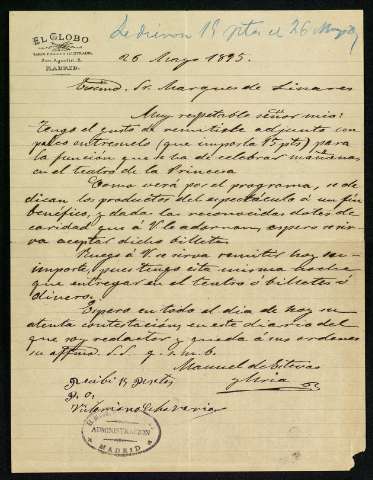 Le dieron 15 ptas el 26 Mayo
EL GLOBO
DIARIO LIBERAL ILUSTRADO
San Agustin, 2.
MADRID.
26 Mayo 1895.
Excmo. Sr. Marques de Linares
Muy respetable señor mio:
Tengo el gusto de remitirle adjunto un
palco entresuelo (que importa 15 pts) para
la funcion que se ha de celebrar mañana
en el teatro de la Princesa
Como verá por el programa, se de-
dican los productos del espectáculo á un fin
benéfico, y dadas las reconocidas dotes de
caridad que á V. le adornan, espero se sir-
va aceptar dicho billete.
Ruego á V. se sirva remitir hoy su
importe, pues tengo esta misma noche
que entregar en el teatro ó billetes ó
dinero.
Espero en todo el dia de hoy su
atenta contestacion en este diario del
que soy redactor y queda á sus ordenes
su affmo. S.S. q. s. m. b.
Manuel de
y
Recibi 15 Pesetas
P. O.
Victoriano Echevarria
ADMINISTRACION
MADRID